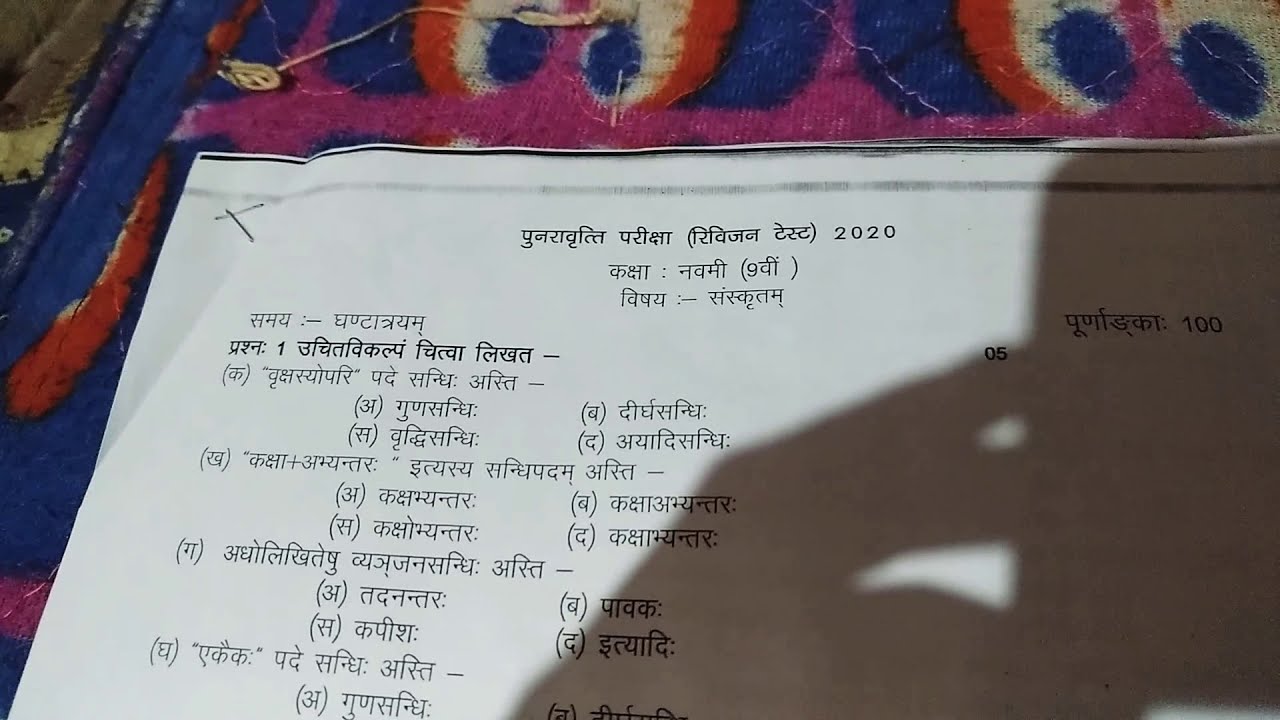 पुनरावृत्ति परीक्षा (रिविजन टेस्ट) 2020
कक्षा : नवमी (9वीं )
विषय :– संस्कृतम्
समय :– घण्टात्रयम् पूर्णाङ्काः 100
प्रश्नः 1 उचितविकल्पं चित्वा लिखत – 05
(क) "वृक्षस्योपरि" पदे सन्धिः अस्ति –
(अ) गुणसन्धिः (ब) दीर्घसन्धिः
(स) वृद्धिसन्धिः (द) अयादिसन्धिः
(ख) "कक्षा+अभ्यन्तरः " इत्यस्य सन्धिपदम् अस्ति –
(अ) कक्षभ्यन्तरः (ब) कक्षाअभ्यन्तरः
(स) कक्षोभ्यन्तरः (द) कक्षाभ्यन्तरः
(ग) अधोलिखितेषु व्यञ्जनसन्धिः अस्ति –
(अ) तदनन्तरः (ब) पावकः
(स) कपीशः (द) इत्यादिः
(घ) "एकैकः" पदे सन्धिः अस्ति –
(अ) गुणसन्धिः (ब)